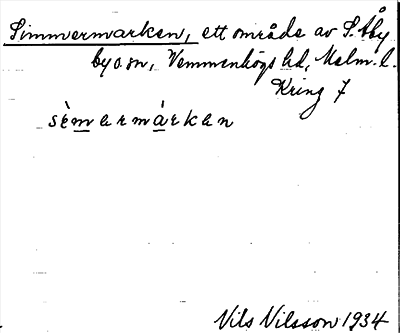 Simmermarken, ett område av S. Åby
by o. sn, Vemmenhögs hd, Malm. l.
Kring 7
sèmərmárkən
Nils Nilsson 1934